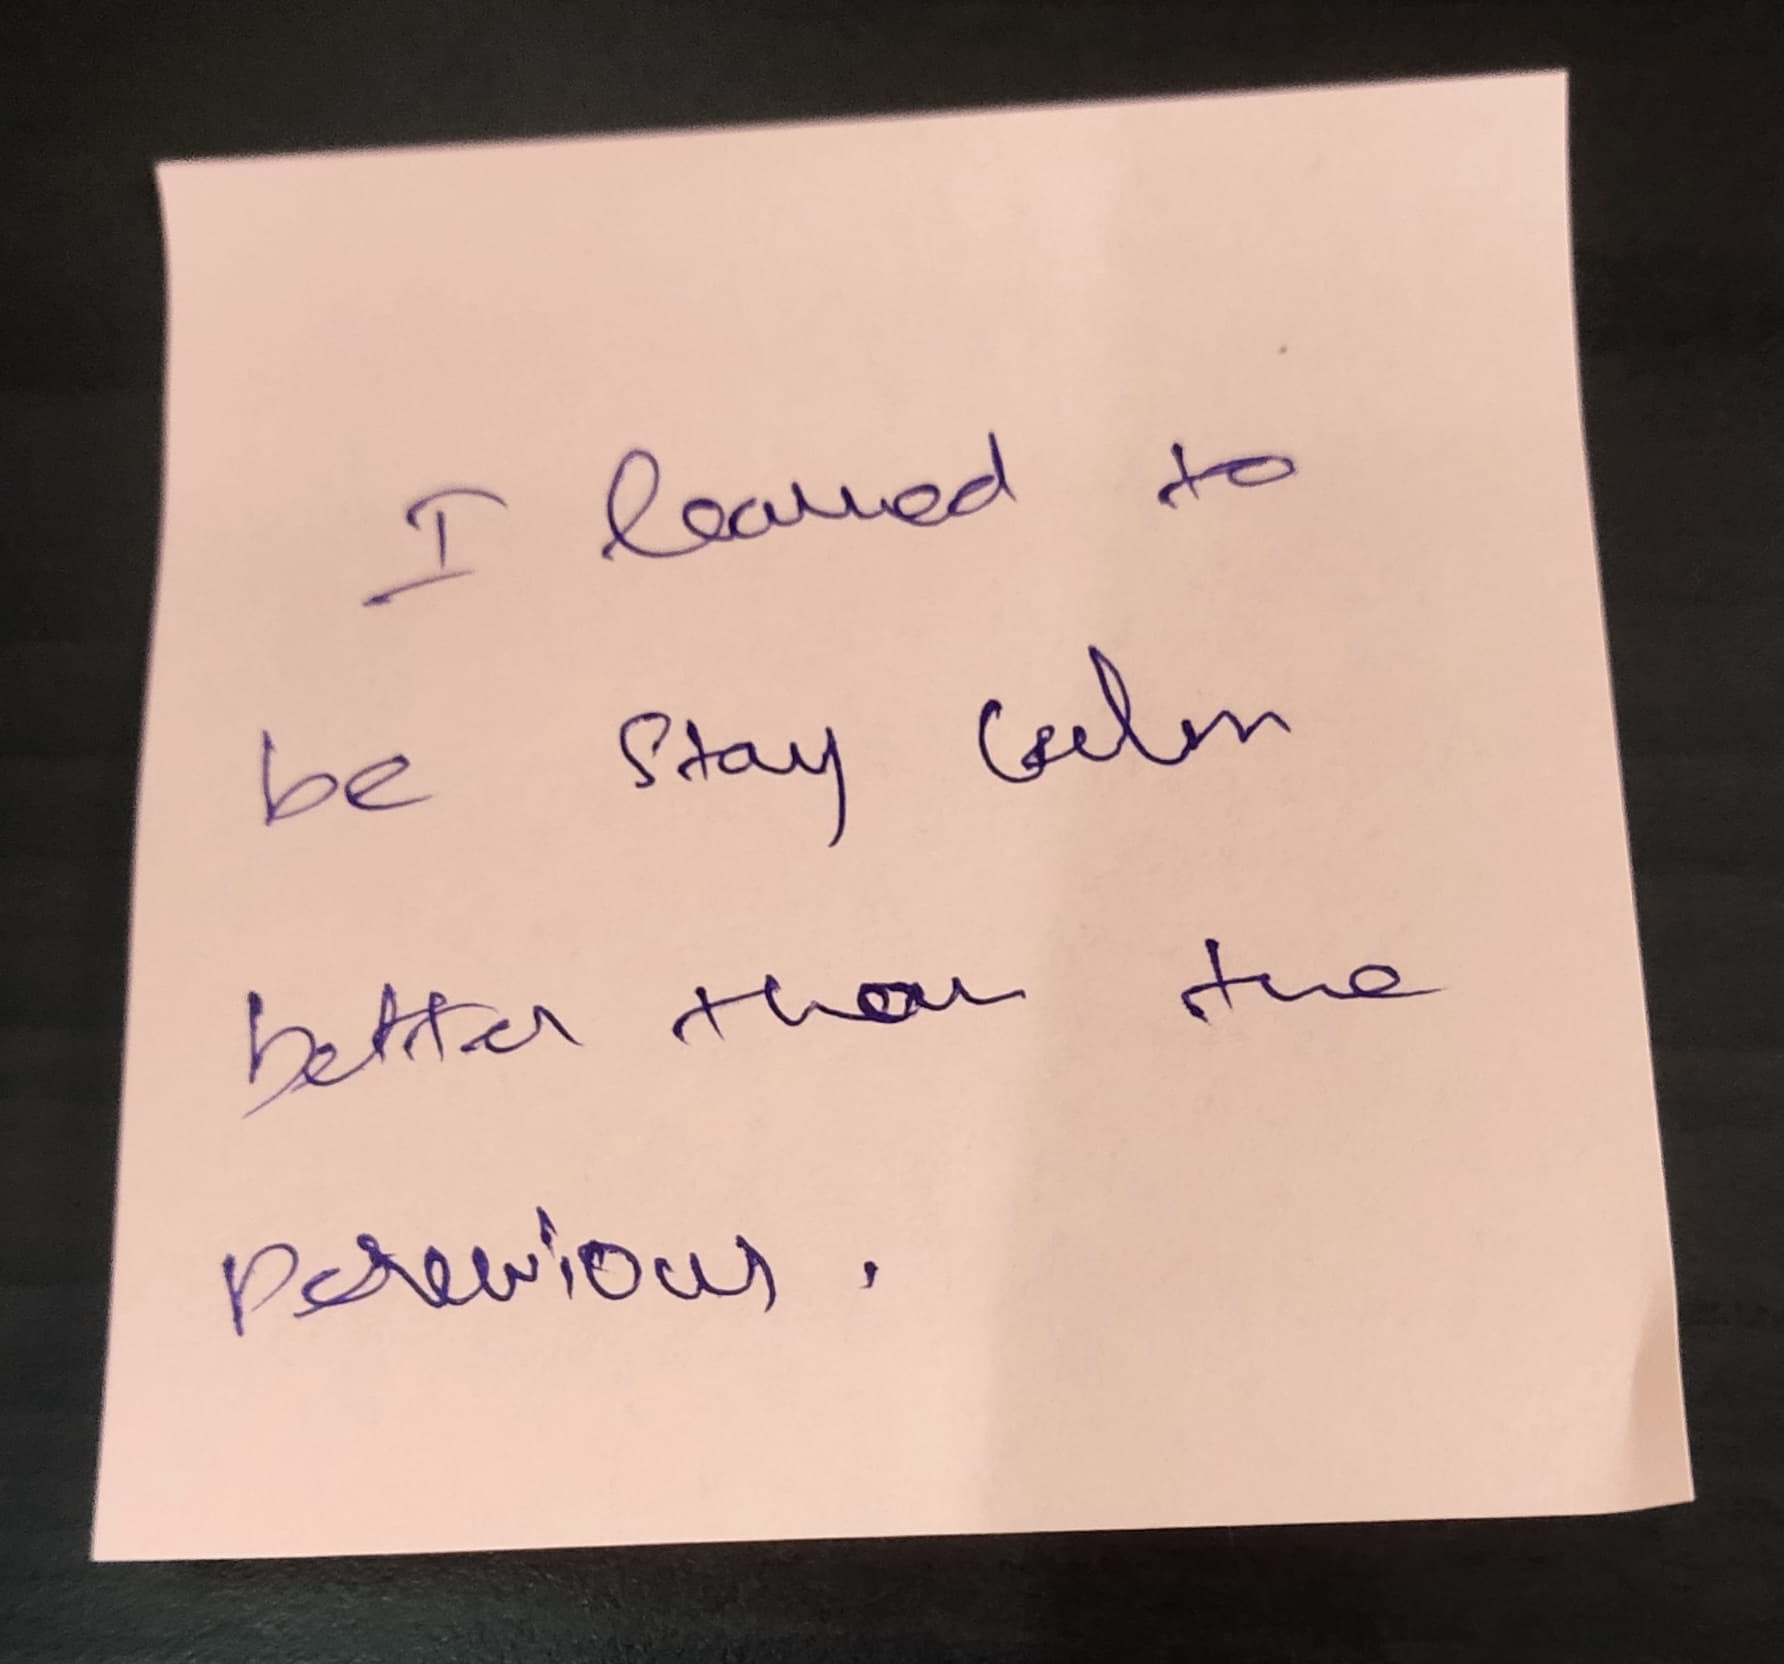 I learned to
be stay calm
better than the
previous.